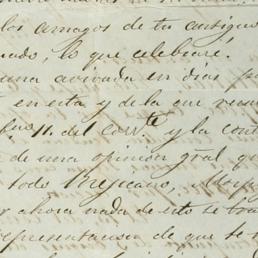 los amagos de tu antiguo
nado, lo que celebraré.
una avivada en dias
en esta y de la que
11. del corr.te y la cont
de una opinion gral que
todo Mejicano,
y ahora nada de esto se tra
representancia de que se